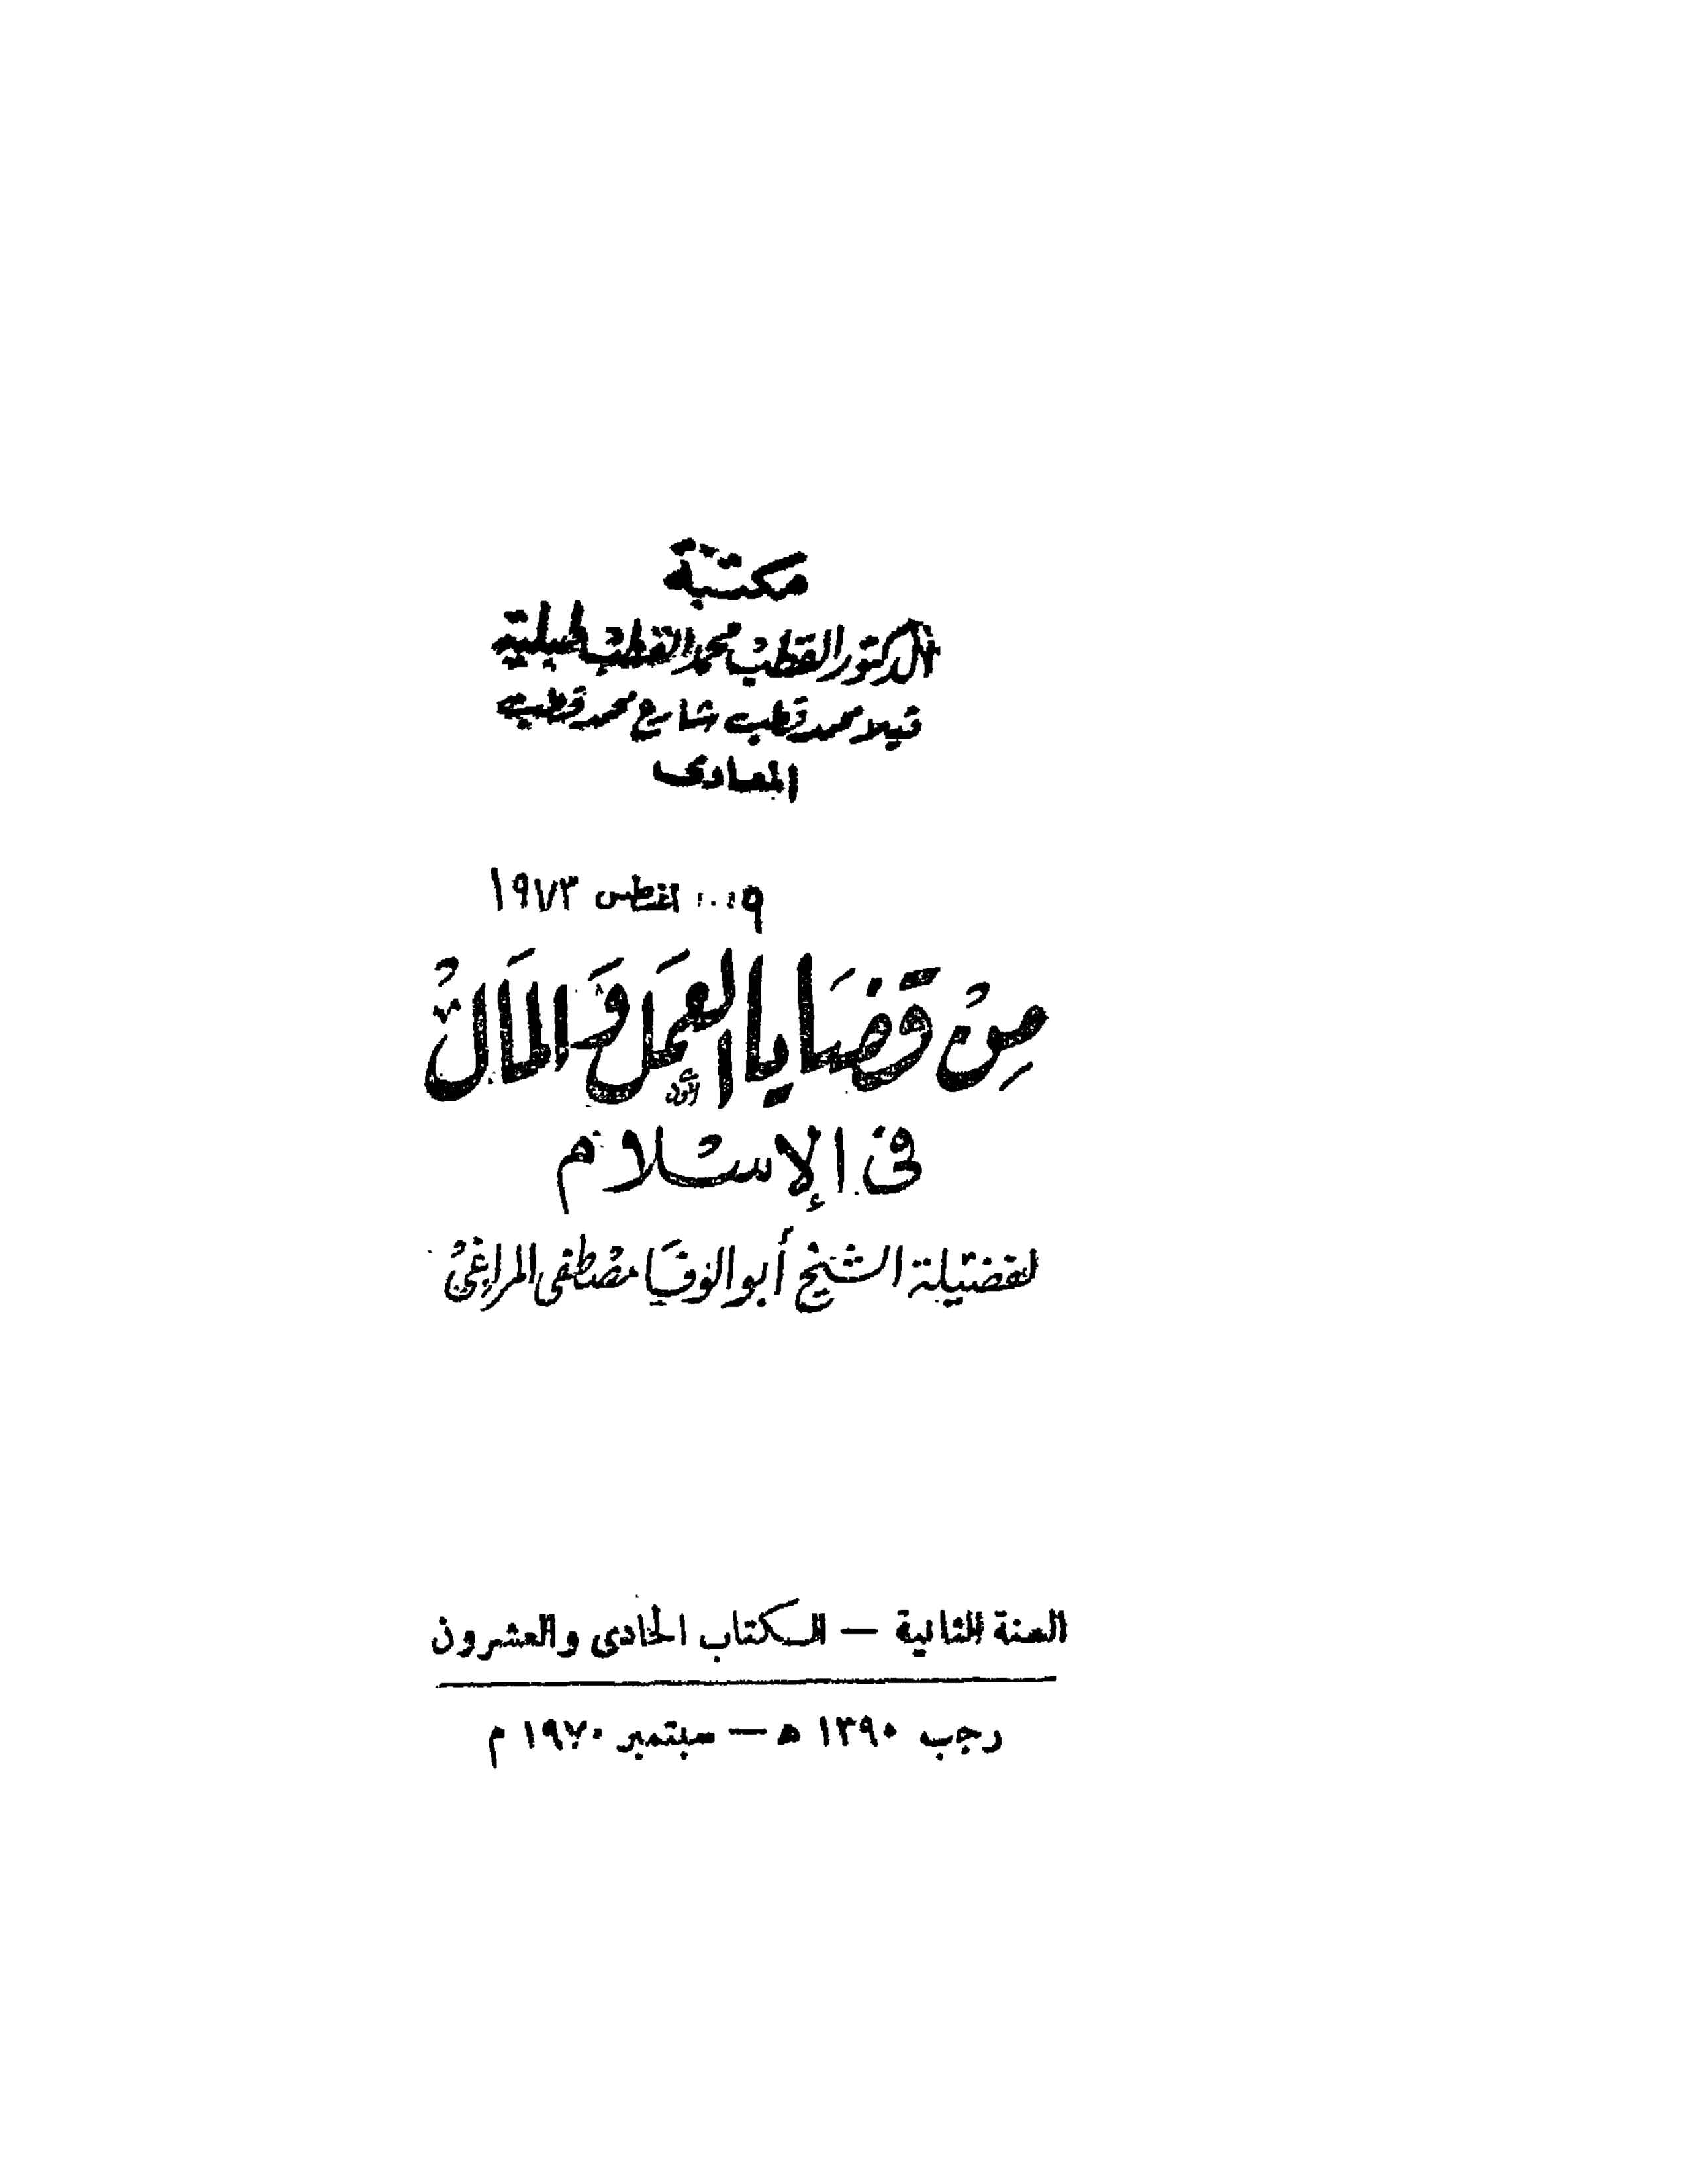 مكتبة
الدكتور القطب محمد القطب طبلية
فيلا محمد قطب شارع محمد قطب
المعادى
٩ اغسطس ١٩٧٣
مِنْ قضَايا العَمَل وَالمَالْ
فى الإسْلام
لفضيلة الشيخ أبو الوفَا مصْطفى المراغىْ
السنة الثانية — الكتاب الحادى والعشرون
رجب ١٣٩٠ ه — سبتمبر ١٩٧٠ م